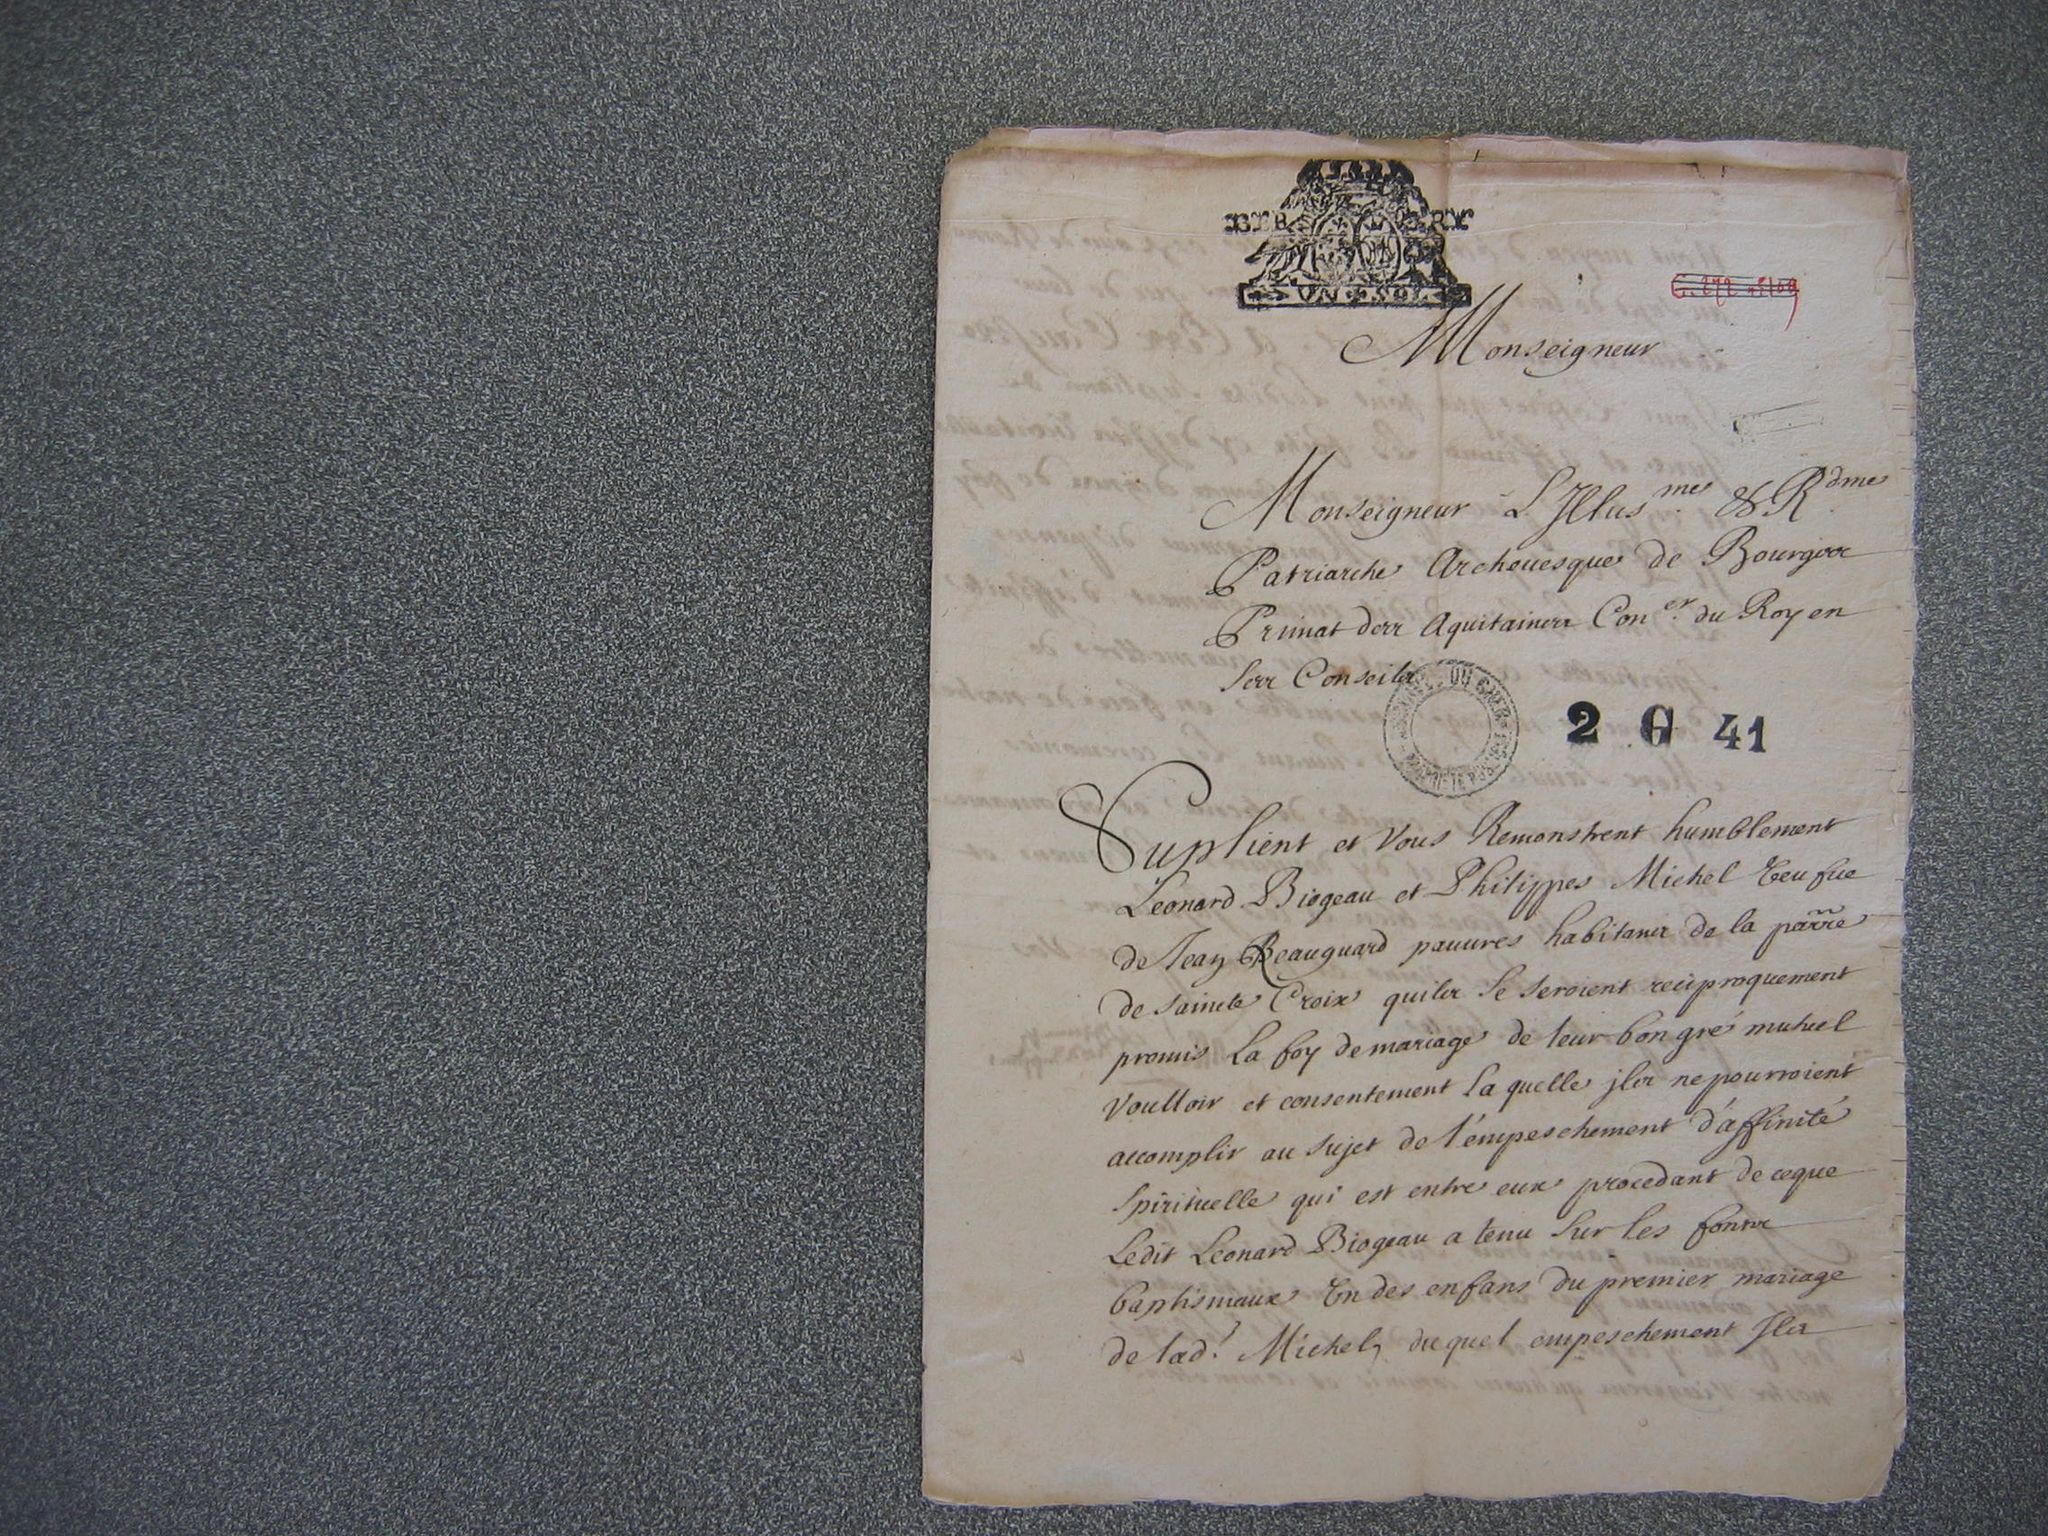 BERRY
UN SOL
G. 272 n° 109
Monseigneur
Monseigneur L'Illus.me & R.dme
Patriarche Archevesque de Bourges
Primat des Aquitaines Con.er du Roy en
ses Conseils
2 G 41
Suplient et vous Remonstrent humblement
Leonard Biogeau et Philippes Michel veufue
de Jean Beauguard pauures habitans de la parr̃e
de sainte Croix quils se seroient reciproquement
promis La foy de mariage de leur bon gré mutuel
voulloir et consentement Laquelle jls ne pourroient
accomplir au sujet de l'empeschement d'affinité
spirituelle qui est entre eux procedant de ceque
Ledit Leonard Biogeau a tenu sur les fonts
baptismaux Un des enfans du premier mariage
de lad.e Michel, duquel empeschement Ils